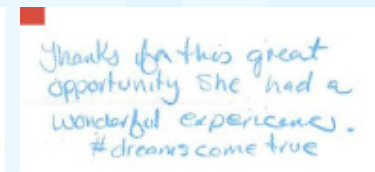 Thanks for this great
opportunity She had a
wonderful experience.
#dreams come true